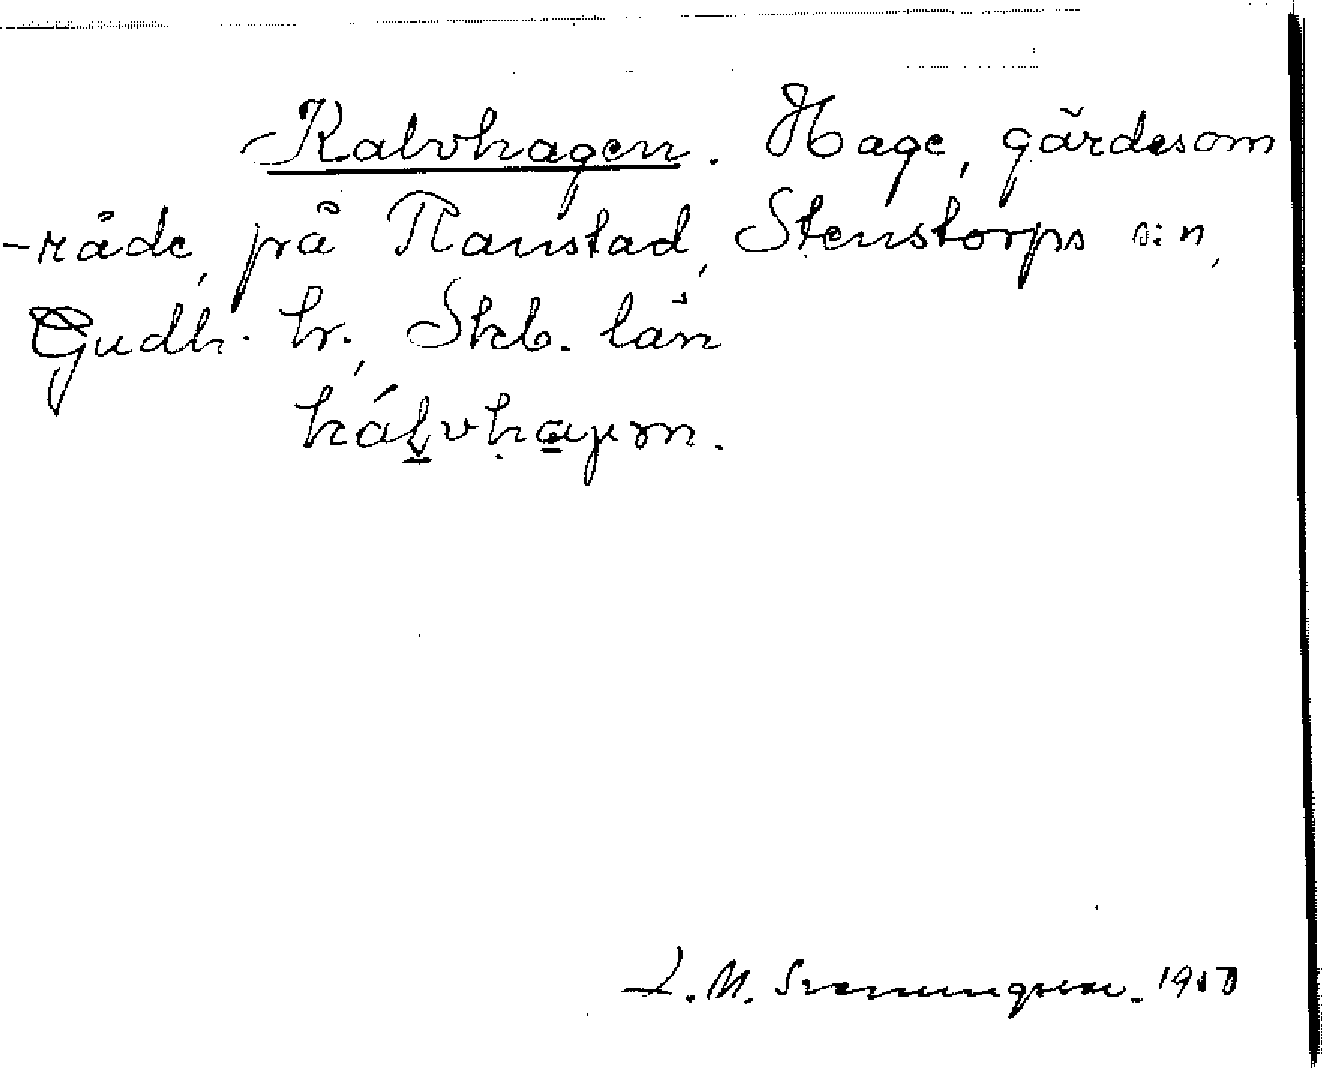 Kalvhagen. Hage, gärdesom
-råde, på Ranstad, Stenstorps s:n,
Gudh. hr., Skb. län
kálvhaγεn.
L. M. Svenungsson. 19